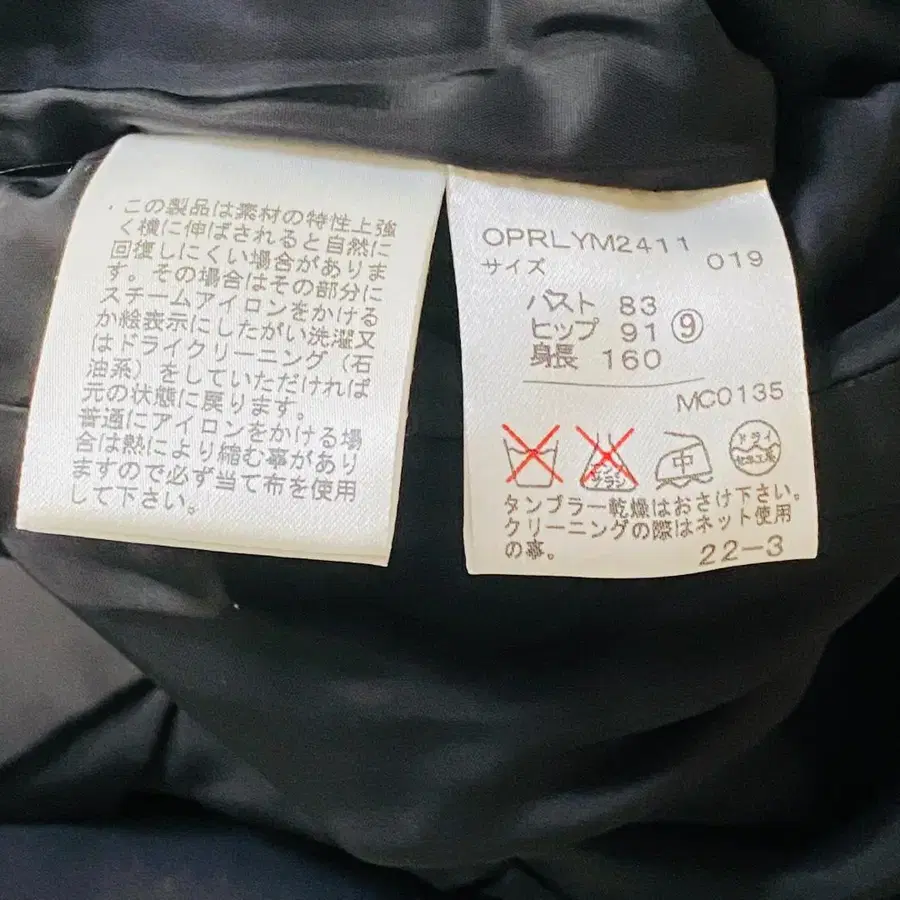 この製品は素材の特性上強
く横に伸ばされると自然に
回復しにくい場合がありま
す。その場合はその部分に
スチームアイロンをかける
か絵表示にしたがい洗濯又
はドライクリーニング（石
油系）をしていただければ
元の状態に戻ります。
普通にアイロンをかける場
合は熱により縮む事があり
ますので必ず当て布を使用
して下さい。
OPRLYM2411
019
サイズ
バスト 83
ヒップ 91 ⑨
身長 160
MC0135
エンソ
サラシ
中
ドライ
セキユ系
タンブラー乾燥はおさけ下さい。
クリーニングの際はネット使用
の事。
22-3